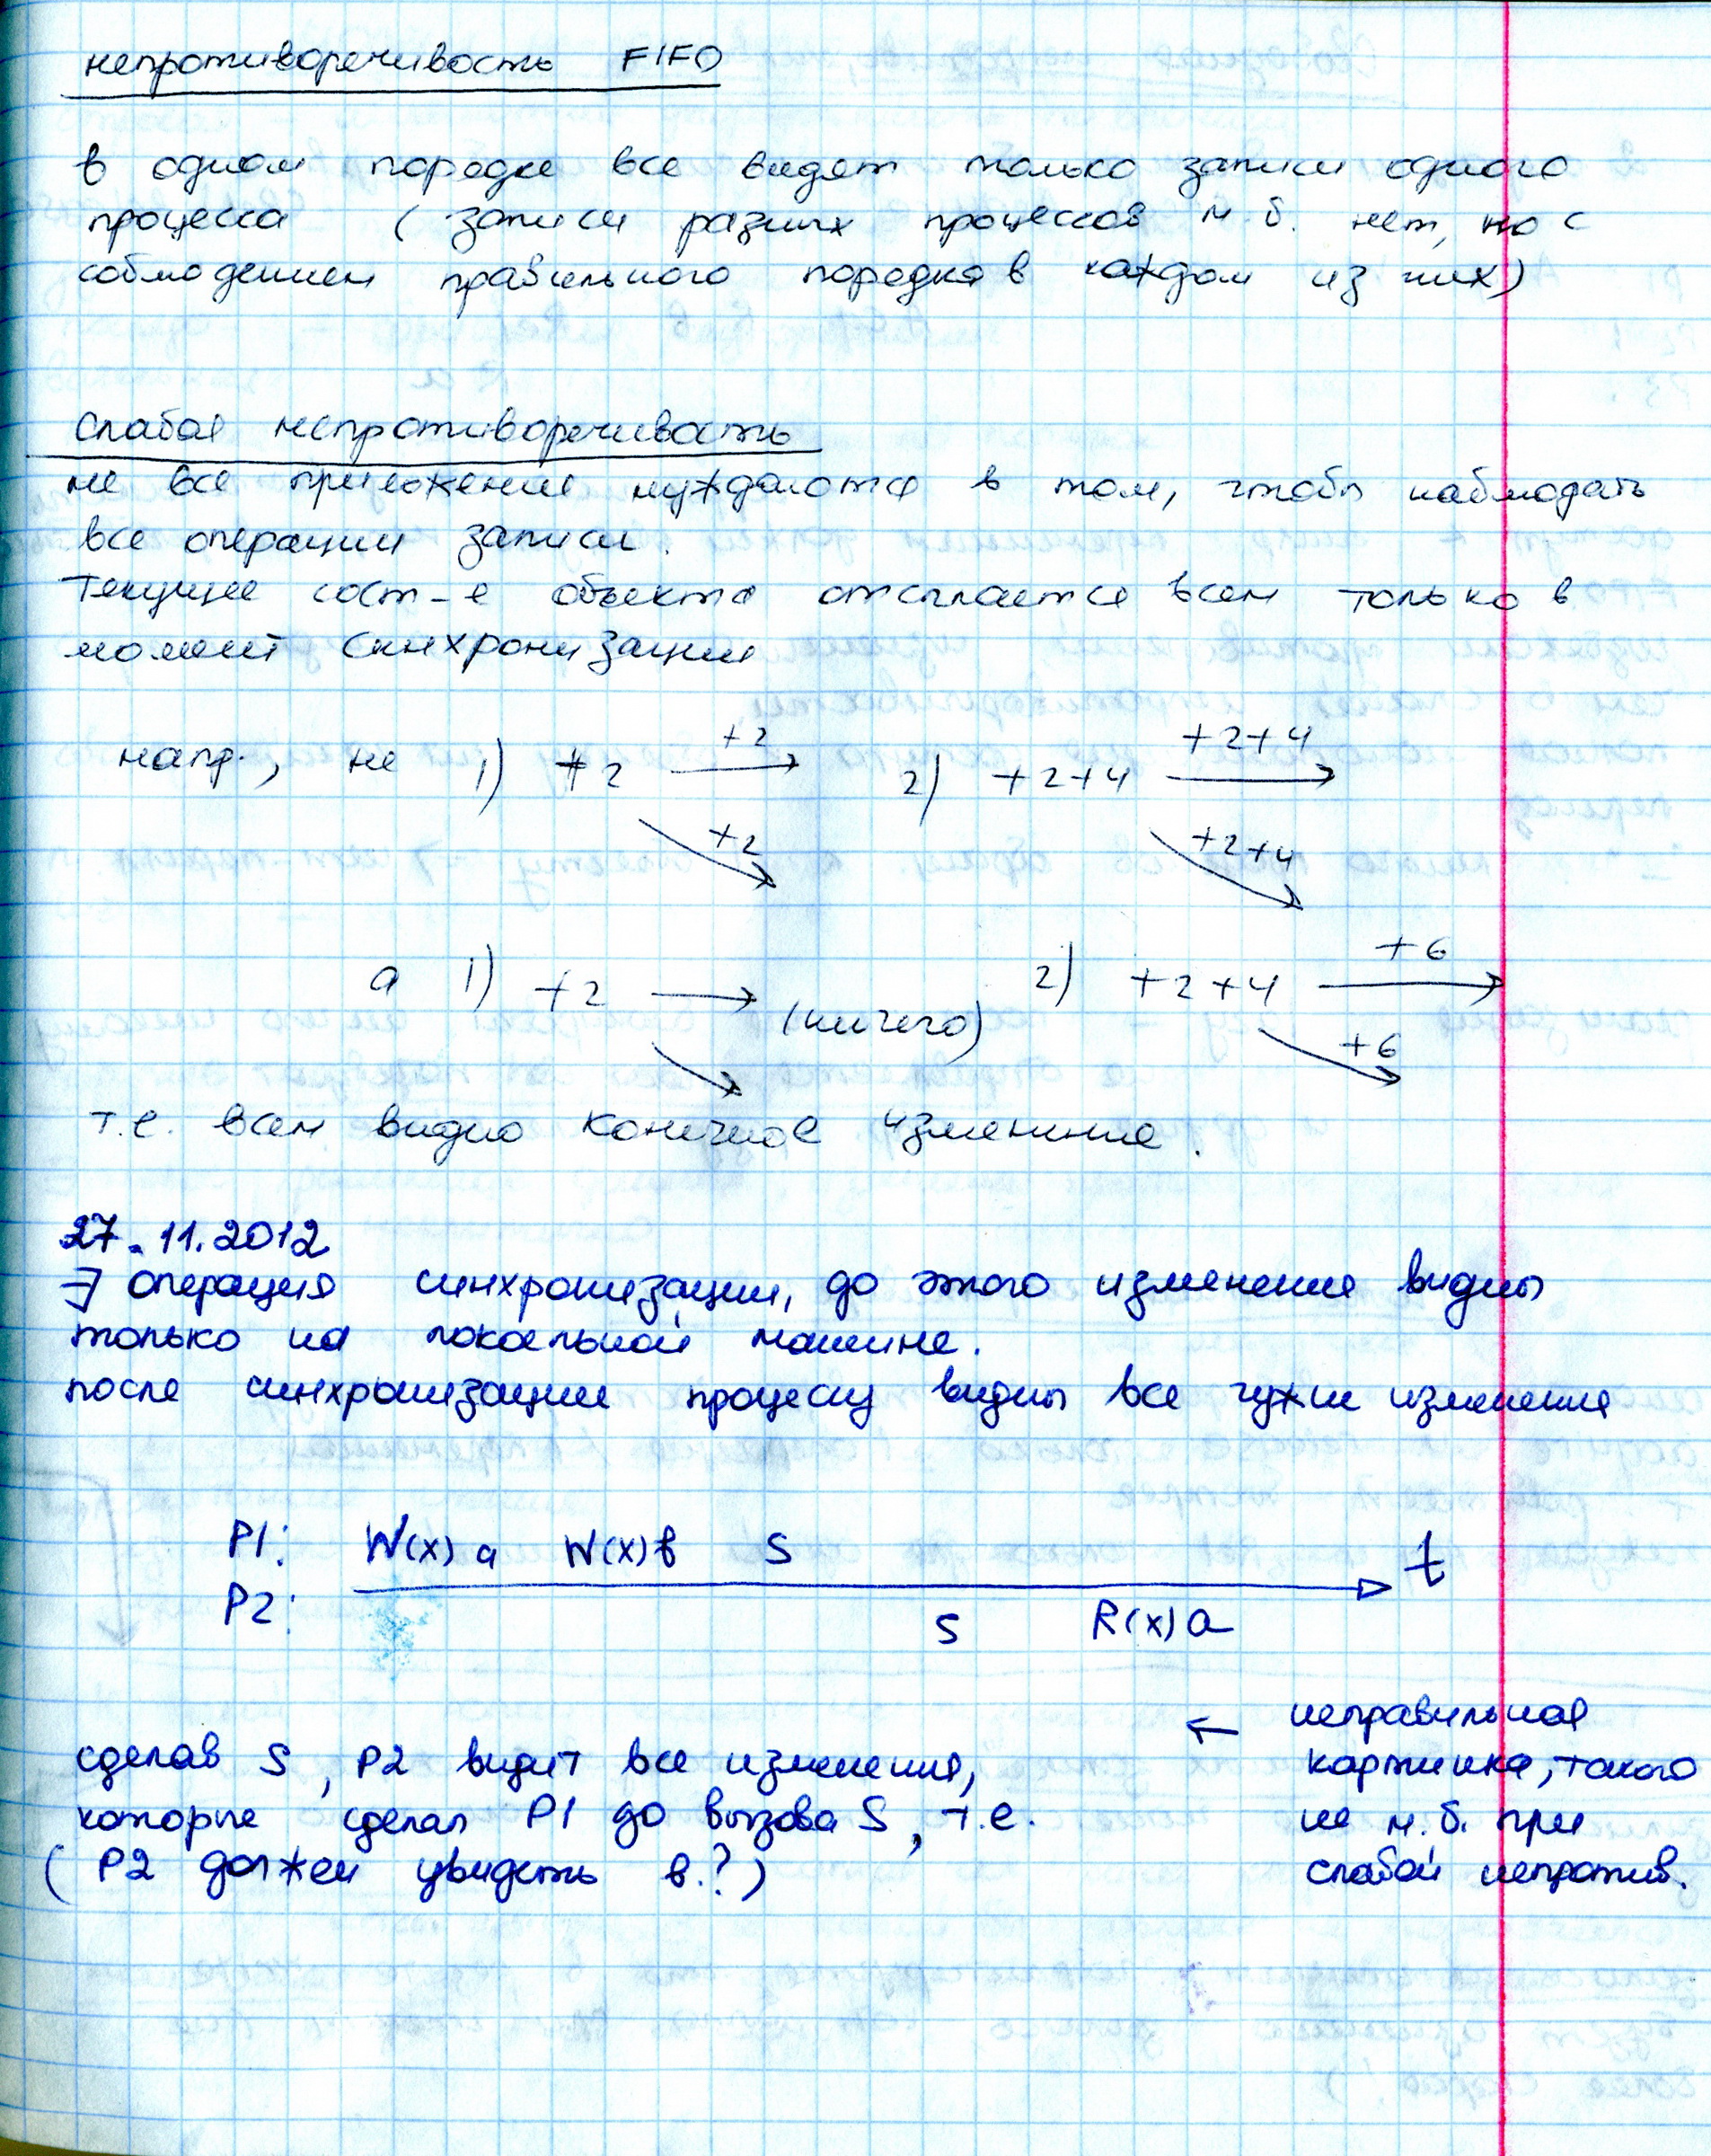 непротиворечивость FIFO
в одном порядке все видят только записи одного
процесса ( записи разных процессов м.б. нет, но с
соблюдением правильного порядка в каждом из них)
Слабая непротиворечивость
не все приложения нуждаются в том, чтобы наблюдать
все операции записи.
Текущее сост-е объекта отсылается всем только в
момент синхронизации
напр., не 1) +2 +2 2) +2+4 +2+4
+2 +2+4
а 1) +2 (ничего) 2) +2+4 +6
+6
т.е. всем видно конечное изменение.
27.11.2012
∃ операция синхронизации, до этого изменения видны
только на локальной машине.
после синхронизации процессу видны все чужие изменения
P1: W(x) a W(x) в S t
P2: S R(x) a
сделав S, P2 видит все изменения,
которые сделал P1 до вызова S, т.е.
( P2 должен увидеть в.?)
← неправильная
картинка, такого
не м.б. при
слабой непротив.